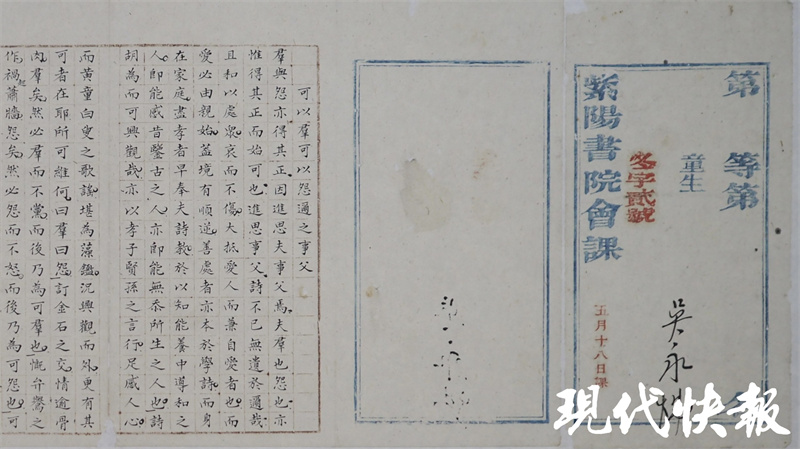 第 等第
童生
吳永
字貳號
紫陽書院會課
五月十八日課
可以羣可以怨邇之事父
羣與怨亦得其正因進思夫事父焉夫羣也怨也亦
惟得其正而始可也進思事父詩不已無遺於邇哉
且和以處眾哀而不傷大抵愛人而兼自愛者也而
愛必由親始蓋境有順逆善處者亦本於學詩而身
在家庭盡孝者早奉夫詩教於以知能養中導和之
人即能感昔鑒古之人亦即能無忝所生之人也詩
胡為而可興觀哉亦以孝子賢孫之言行足感人心
而黃童白叟之歌謠堪為藻鑑況興觀而外更有其
可者在耶所可維何曰羣曰怨訂金石之交情逾骨
肉羣矣然必羣而不黨而後乃為可羣也慨弁鸒之
作禍起蕭牆怨矣然必怨而不怒而後乃為可怨也可
現代快報